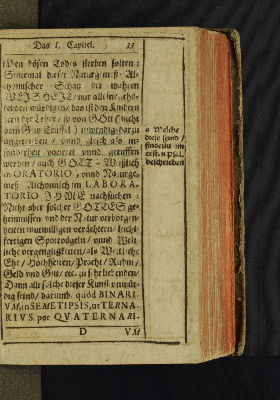 Das 1. Capitel. 33
süden bösen Todts sterben solten:
Sintemal dieser Naturgemeß-Al-
chymischer Schatz der wahren
WEISHEIT/ nur allein
werden würdigen/ das ist den Kindern
der Lehre/ so von GOtt (nicht
vom Teuffel) inwendig darzu
angetrieben/ vnnd gleich als in-
sonderheit vociert vnnd geruffen
werden/ auch GOTT-Weißlich
in ORATORIO, vnnd Naturge-
meß Alchymisch im LABORA-
TORIO IHME nachsuchen:
Nicht aber solcher GOTTES ge-
heimnissen vnd der Natur verborgen-
heiten mutwilligen verächtern/ leicht-
fertigen Spottvögeln/ vnnd Welt
liche vergengligkeiten/ als Weltliche
Ehr/ Hochheiten/ Pracht/ Ruhm/
Geld vnd Gut/ etc. zu sehr liebenden/
Dann alle solche dieser Kunst vnwür-
dig seind/ darumb, quòd BINARI-
VM, in SEMETIPSIS, ut TERNA-
RIVS per QVATERNARI-
D VM
a Welche
diese seind/
findestu im
ersten Psal.
beschrieben